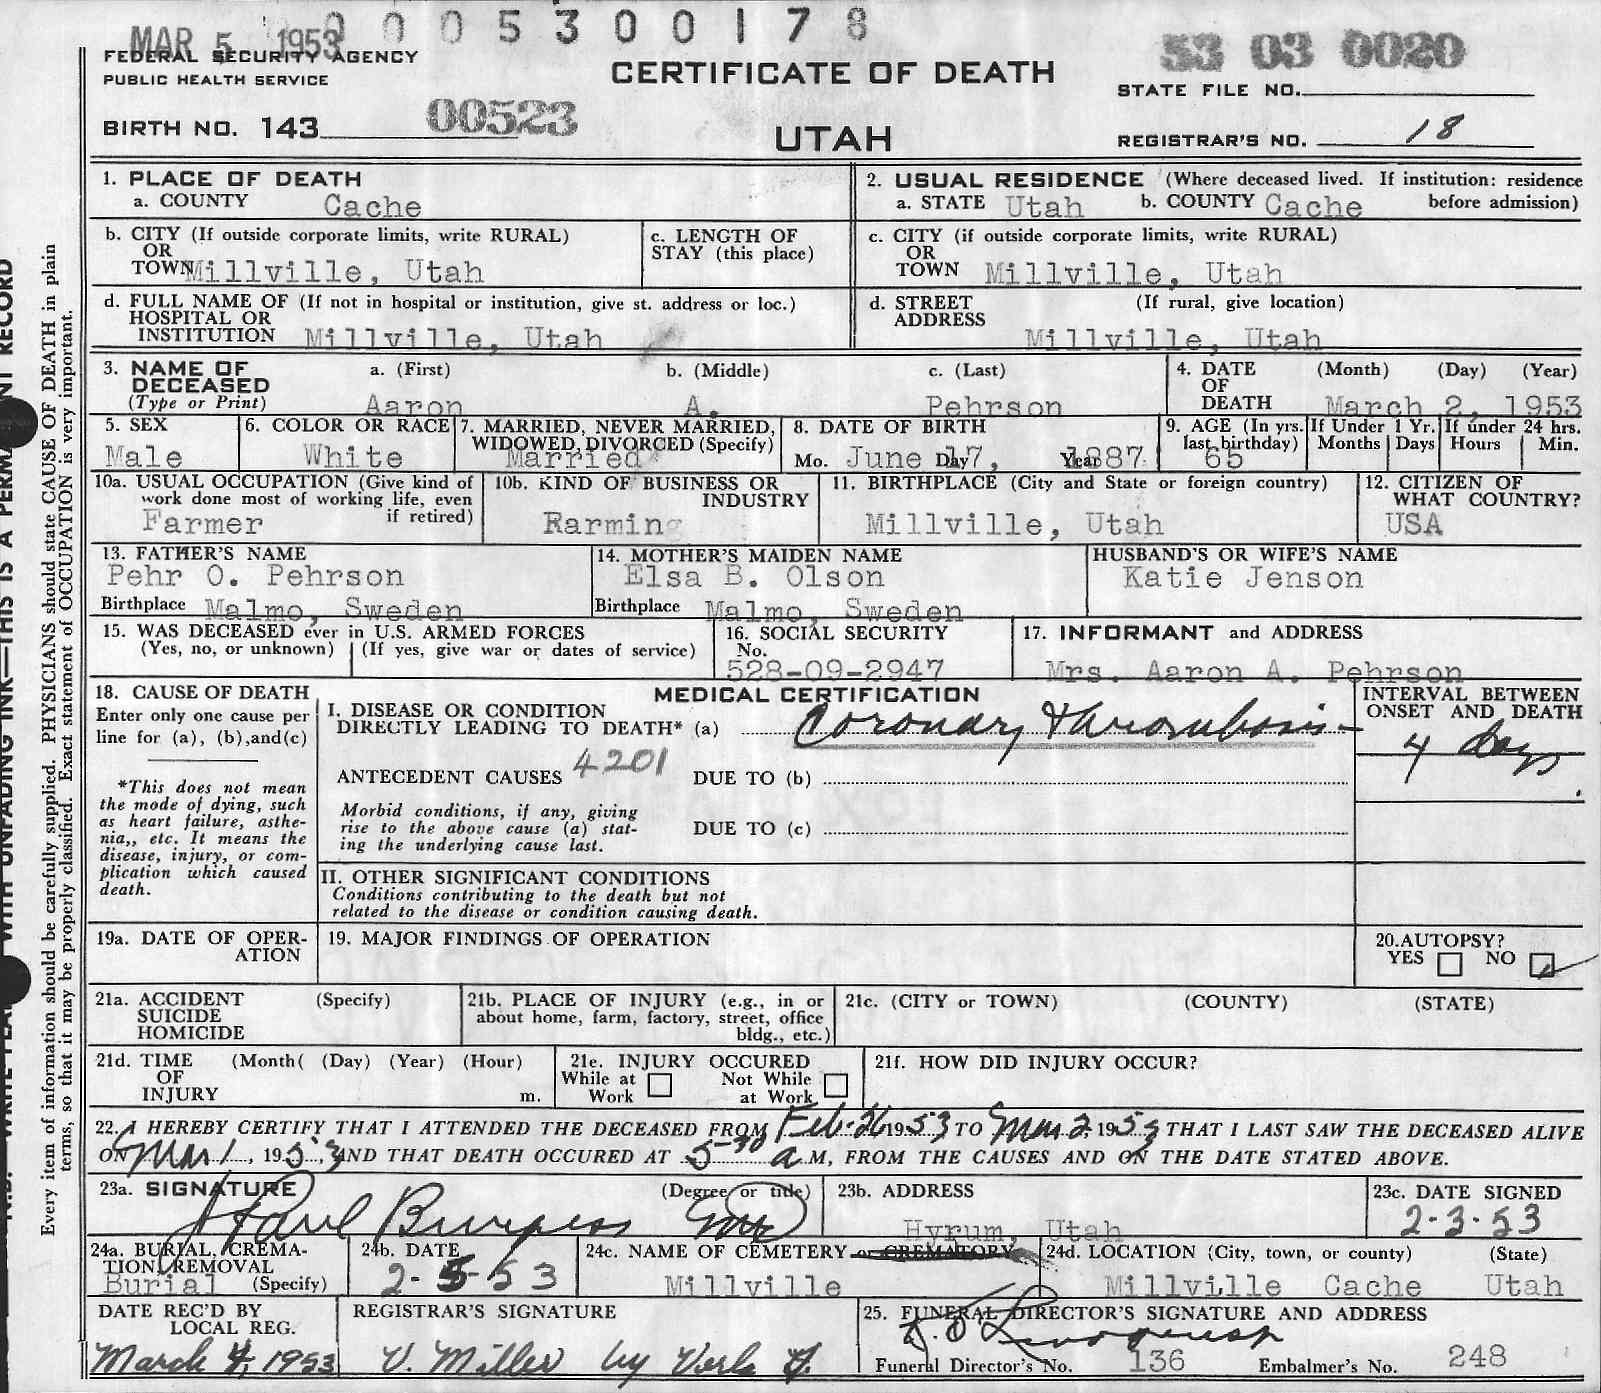 MAR 5 1953
0 0 0 5 3 0 0 1 7 8
53 03 0020
FEDERAL SECURITY AGENCY
PUBLIC HEALTH SERVICE
CERTIFICATE OF DEATH
STATE FILE NO.
BIRTH NO. 143 00523
UTAH
REGISTRAR'S NO. 18
1. PLACE OF DEATH
a. COUNTY Cache
2. USUAL RESIDENCE (Where deceased lived. If institution: residence before admission)
a. STATE Utah b. COUNTY Cache
b. CITY (If outside corporate limits, write RURAL)
OR
TOWN Millville, Utah
c. LENGTH OF
STAY (this place)
c. CITY (if outside corporate limits, write RURAL)
OR
TOWN Millville, Utah
d. FULL NAME OF (If not in hospital or institution, give st. address or loc.)
HOSPITAL OR
INSTITUTION Millville, Utah
d. STREET (If rural, give location)
ADDRESS
Millville, Utah
3. NAME OF
DECEASED
(Type or Print)
a. (First) b. (Middle) c. (Last)
Aaron A. Pehrson
4. DATE (Month) (Day) (Year)
OF
DEATH March 2, 1953
5. SEX
Male
6. COLOR OR RACE
White
7. MARRIED, NEVER MARRIED,
WIDOWED, DIVORCED (Specify)
Married
8. DATE OF BIRTH
Mo. June Day 17, Year 1887
9. AGE (In yrs. last birthday)
65
If Under 1 Yr.
Months Days
If under 24 hrs.
Hours Min.
10a. USUAL OCCUPATION (Give kind of
work done most of working life, even
if retired)
Farmer
10b. KIND OF BUSINESS OR
INDUSTRY
Rarming
11. BIRTHPLACE (City and State or foreign country)
Millville, Utah
12. CITIZEN OF
WHAT COUNTRY?
USA
13. FATHER'S NAME
Pehr O. Pehrson
Birthplace Malmo, Sweden
14. MOTHER'S MAIDEN NAME
Elsa B. Olson
Birthplace Malmo, Sweden
HUSBAND'S OR WIFE'S NAME
Katie Jenson
15. WAS DECEASED ever in U.S. ARMED FORCES
(Yes, no, or unknown) (If yes, give war or dates of service)
16. SOCIAL SECURITY
No.
528-09-2947
17. INFORMANT and ADDRESS
Mrs. Aaron A. Pehrson
18. CAUSE OF DEATH
Enter only one cause per
line for (a), (b),and(c)
*This does not mean
the mode of dying, such
as heart failure, asthe-
nia,, etc. It means the
disease, injury, or com-
plication which caused
death.
MEDICAL CERTIFICATION
I. DISEASE OR CONDITION
DIRECTLY LEADING TO DEATH* (a) Coronary thrombosis
INTERVAL BETWEEN
ONSET AND DEATH
4 days
ANTECEDENT CAUSES 4201 DUE TO (b)
Morbid conditions, if any, giving
rise to the above cause (a) stat-
ing the underlying cause last.
DUE TO (c)
II. OTHER SIGNIFICANT CONDITIONS
Conditions contributing to the death but not
related to the disease or condition causing death.
19a. DATE OF OPER-
ATION
19. MAJOR FINDINGS OF OPERATION
20.AUTOPSY?
YES NO
21a. ACCIDENT (Specify)
SUICIDE
HOMICIDE
21b. PLACE OF INJURY (e.g., in or
about home, farm, factory, street, office
bldg., etc.)
21c. (CITY or TOWN) (COUNTY) (STATE)
21d. TIME (Month( (Day) (Year) (Hour)
OF
INJURY m.
21e. INJURY OCCURED
While at Work Not While at Work
21f. HOW DID INJURY OCCUR?
22. I HEREBY CERTIFY THAT I ATTENDED THE DECEASED FROM Feb. 26 1953 TO Mar 2, 1953 THAT I LAST SAW THE DECEASED ALIVE
ON Mar 1, 1953 AND THAT DEATH OCCURED AT 5-30 a M, FROM THE CAUSES AND ON THE DATE STATED ABOVE.
23a. SIGNATURE (Degree or title)
Paul Burgess
23b. ADDRESS
Hyrum, Utah
23c. DATE SIGNED
2-3-53
24a. BURIAL, CREMA-
TION, REMOVAL
Burial (Specify)
24b. DATE
2-5-53
24c. NAME OF CEMETERY or CREMATORY
Millville
24d. LOCATION (City, town, or county) (State)
Millville Cache Utah
DATE REC'D BY
LOCAL REG.
March 4, 1953
REGISTRAR'S SIGNATURE
V. Miller by Verla
25. FUNERAL DIRECTOR'S SIGNATURE AND ADDRESS
Funeral Director's No. 136 Embalmer's No. 248
Every item of information should be carefully supplied. PHYSICIANS should state CAUSE OF DEATH in plain
terms, so that it may be properly classified. Exact statement of OCCUPATION is very important.
WITH UNFADING INK—THIS IS A
RECORD